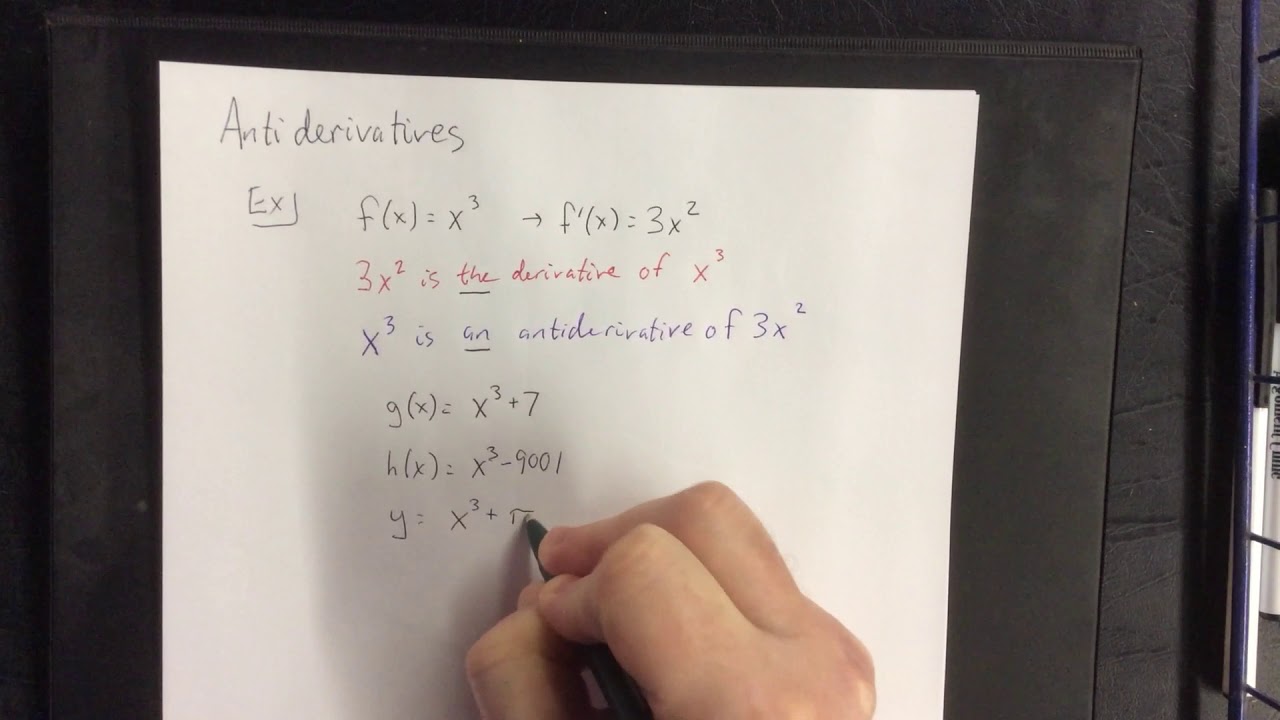 Antiderivatives
Ex] f(x) = x³ → f'(x) = 3x²
3x² is the derivative of x³
x³ is an antiderivative of 3x²
g(x) = x³ + 7
h(x) = x³ - 9001
y = x³ + π